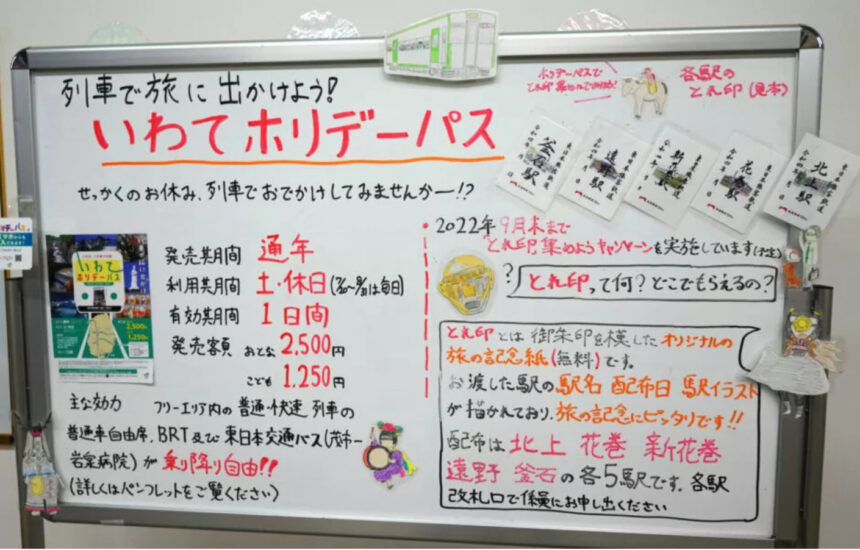 列車で旅に出かけよう!
いわてホリデーパス
せっかくのお休み、列車でおでかけしてみませんかー!?
いわて
ホリデーパス
2,500円
1,250円
発売期間 通年
利用期間 土・休日
有効期間 1日間
発売額 おとな 2,500円
こども 1,250円
主な効力 フリーエリア内の普通・快速列車の
普通車自由席、BRT及び東日本交通バス(茂市ー
岩泉病院)が乗り降り自由!!
(詳しくはパンフレットをご覧ください)
ホリデーパスで
各駅の
とれ印(見本)
釜石駅
遠野駅
新花巻駅
花巻駅
北上駅
・2022年9月末まで
とれ印集めようキャンペーンを実施しています(予定)
?
とれ印って何?どこでもらえるの?
とれ印とは御朱印を模したオリジナルの
旅の記念紙(無料)です。
お渡した駅の駅名 配布日 駅イラスト
が描かれており、旅の記念にピッタリです!!
配布は北上 花巻 新花巻
遠野 釜石の各5駅です。各駅
改札口で係員にお申し出ください